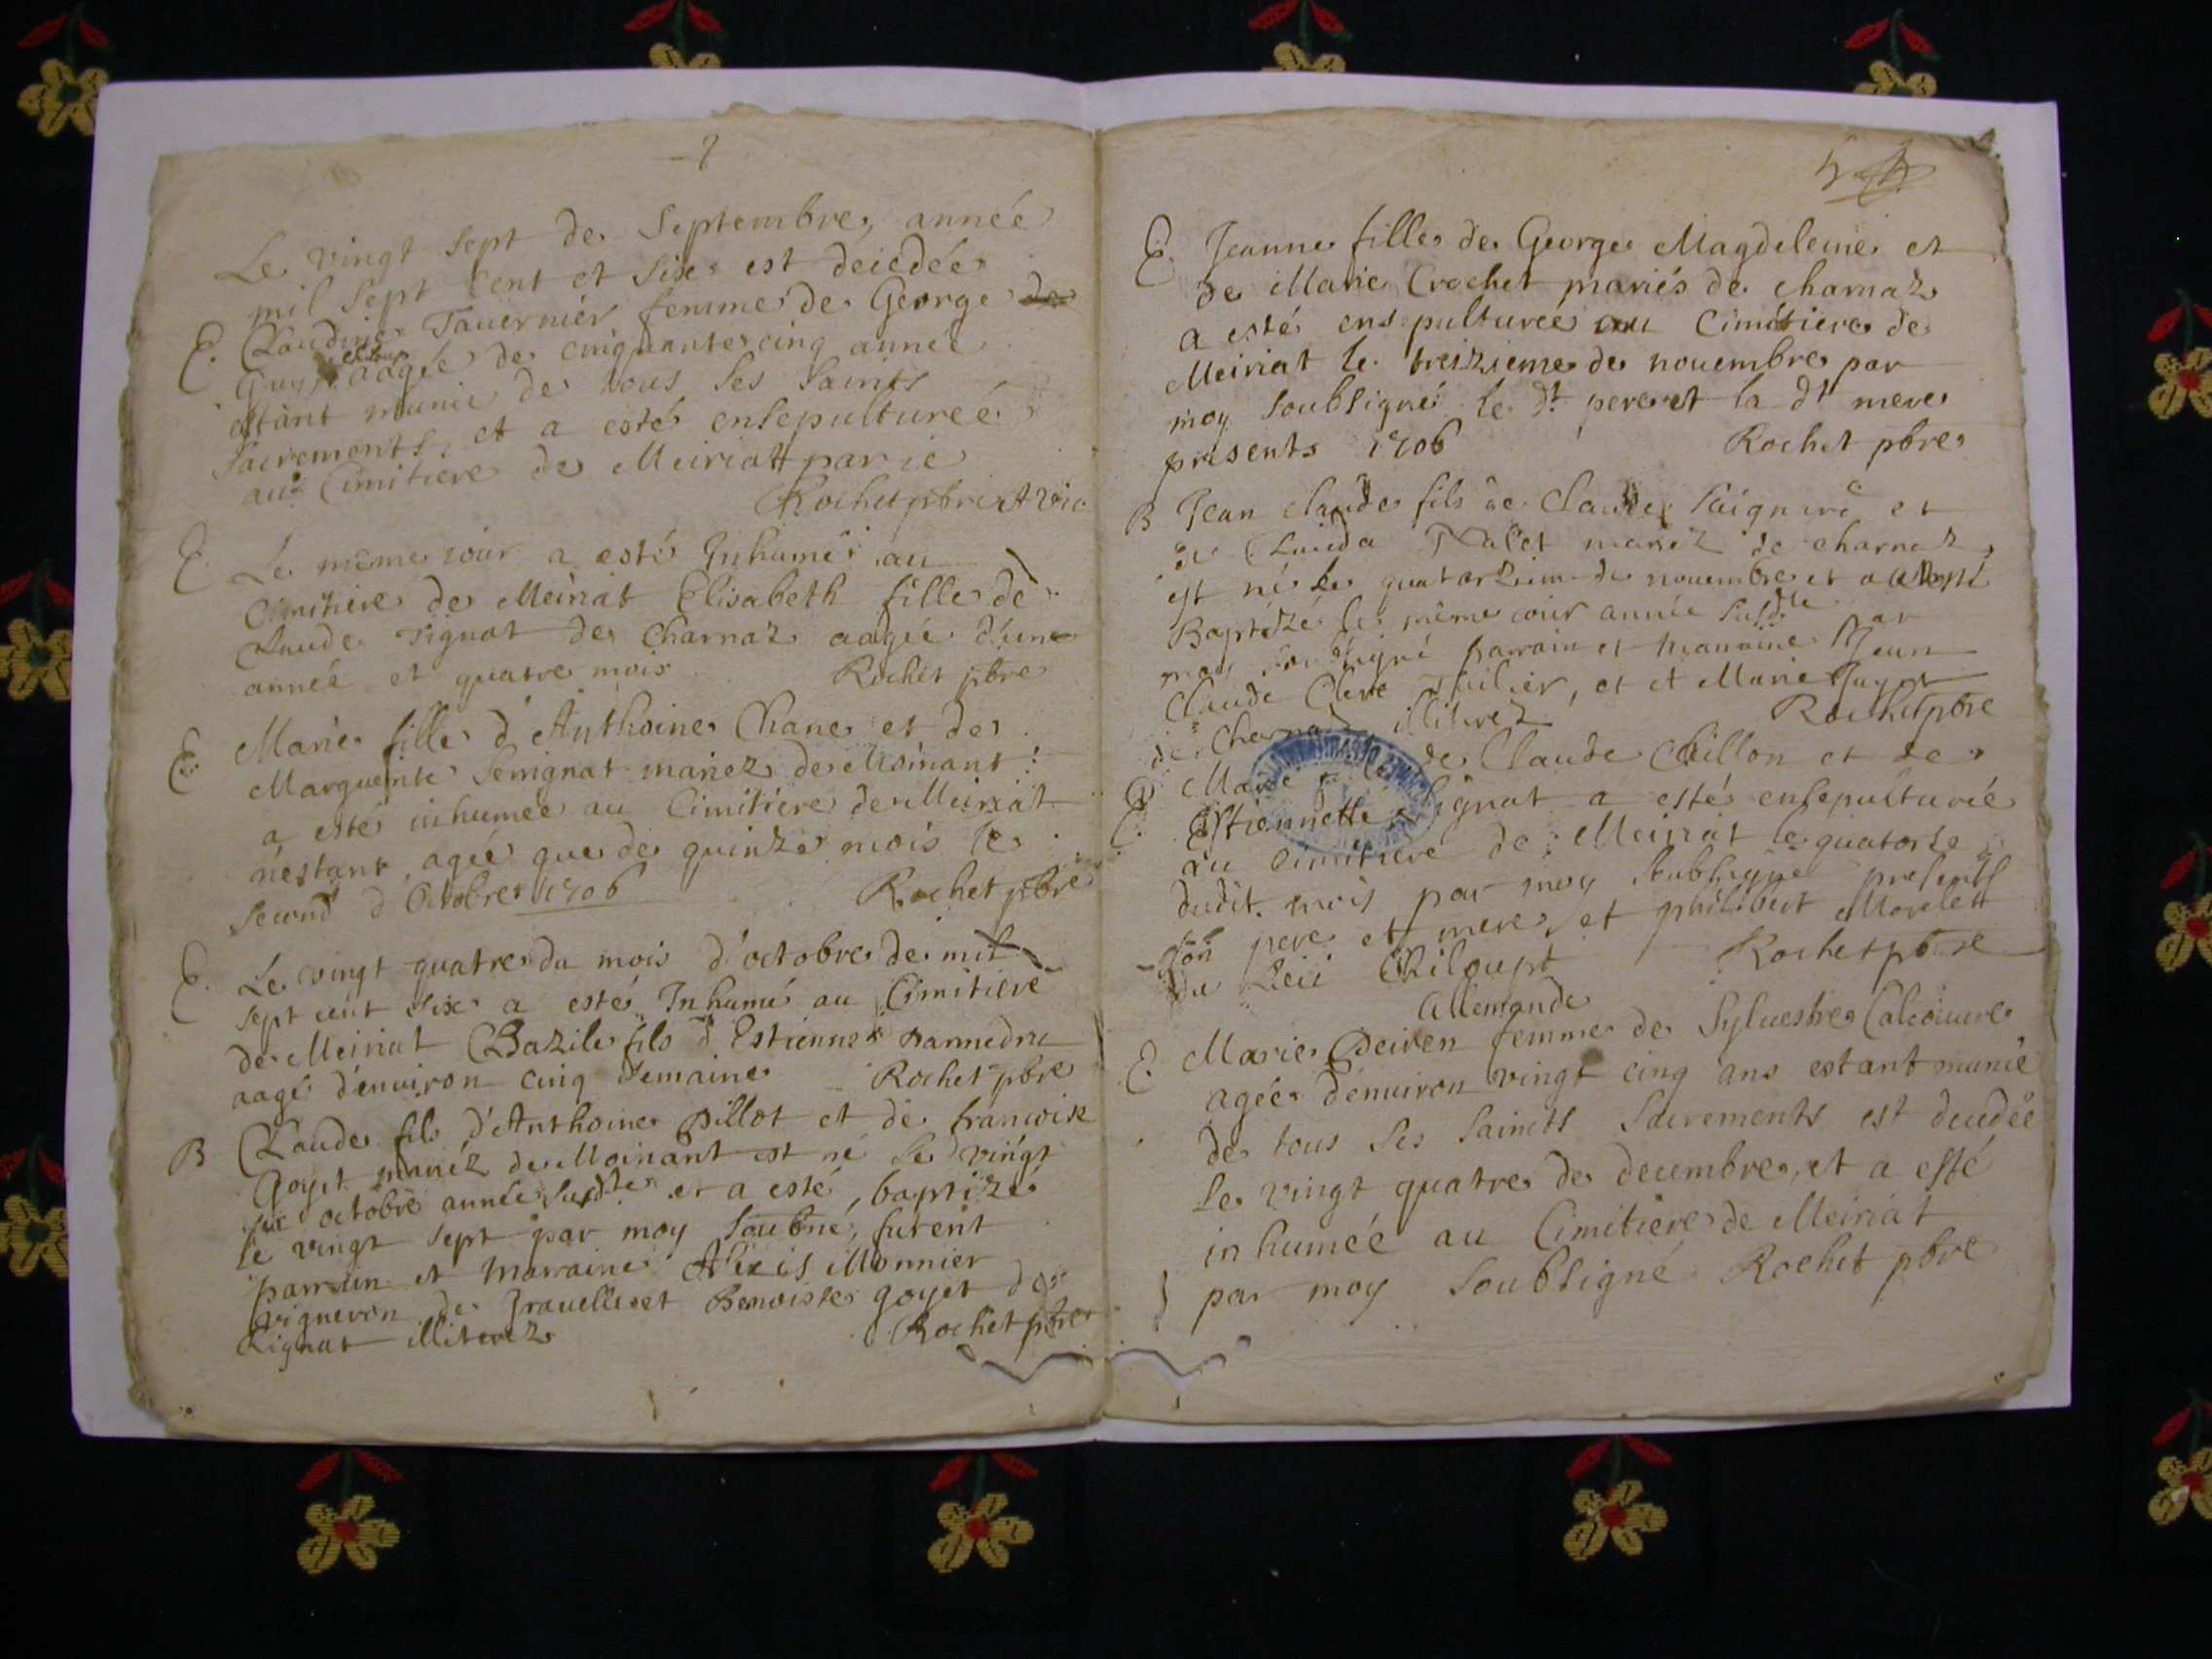 Le vingt sept de Septembre, année
mil sept cent et six est deicdée
E. Claudine Tauernier femme de George de
Guy aagée de cinquante cinq année
estant munie de tous ses saints
sacrements, et a esté ensepulturée
au Cimitiere de Meiriat par ie
Rochet pbre et vic
E. Le même iour a esté Inhumé au
Cimitiere de Meiriat Elisabeth fille de
Claude Tignat de Charnaz aagée d'une
année et quatre mois Rochet pbre
E. Marie fille d'Anthoine Chane et de
Marguerite Serignat mariez de Moinant
a esté inhumée au Cimitiere de Meiriat
n'estant agée que de quinze mois le
second d'Octobre 1706 Rochet pbre
E. Le vingt quatre du mois d'octobre de mil
sept cent six a esté Inhumé au Cimitiere
de Meiriat Bazile fils d'Estienne
aagé d'enuiron cinq semaine Rochet pbre
B Claude fils d'Anthoine Pillot et de francoise
Goyet mariéz de Moinant est né le vingt
six octobre année susdte et a esté baptizé
le vingt sept par moy soubné, furent
parrain et marraine Alexis Monnier
vigneron de Grauelle et Benoiste goyet de
Rignat illiterez Rochet pbre
5
E. Jeanne fille de George Magdeleine et
de Marie Crochet mariés de charnaz
a esté ensepulturée au Cimitiere de
Meiriat le treizieme de nouembre par
moy soubsigné le dt pere et la dt mere
presents 1706 Rochet pbre
B Jean claude fils de Claude et
de mariéz de charnaz
est né le quatorzieme de nouembre et a esté
Baptizé le même iour année susdte par
moy soubsigné parrain et marraine Jean
Claude Clere, et Marie
de Charnaz illiterez Rochet pbre
E. Marie fille de Claude Chillon et de
Estiennette a esté ensepulturée
au Cimitiere de Meiriat le quatorze
dudit mois par moy soubsigné presents
son pere et mere, et philibert Morelett
Rochet pbre
Allemande
E. Marie femme de Syluestre
agée d'enuiron vingt cinq ans estant munie
de tous ses saincts sacrements est decedée
le vingt quatre de decembre, et a esté
inhumée au Cimitiere de Meiriat
par moy soubsigné Rochet pbre